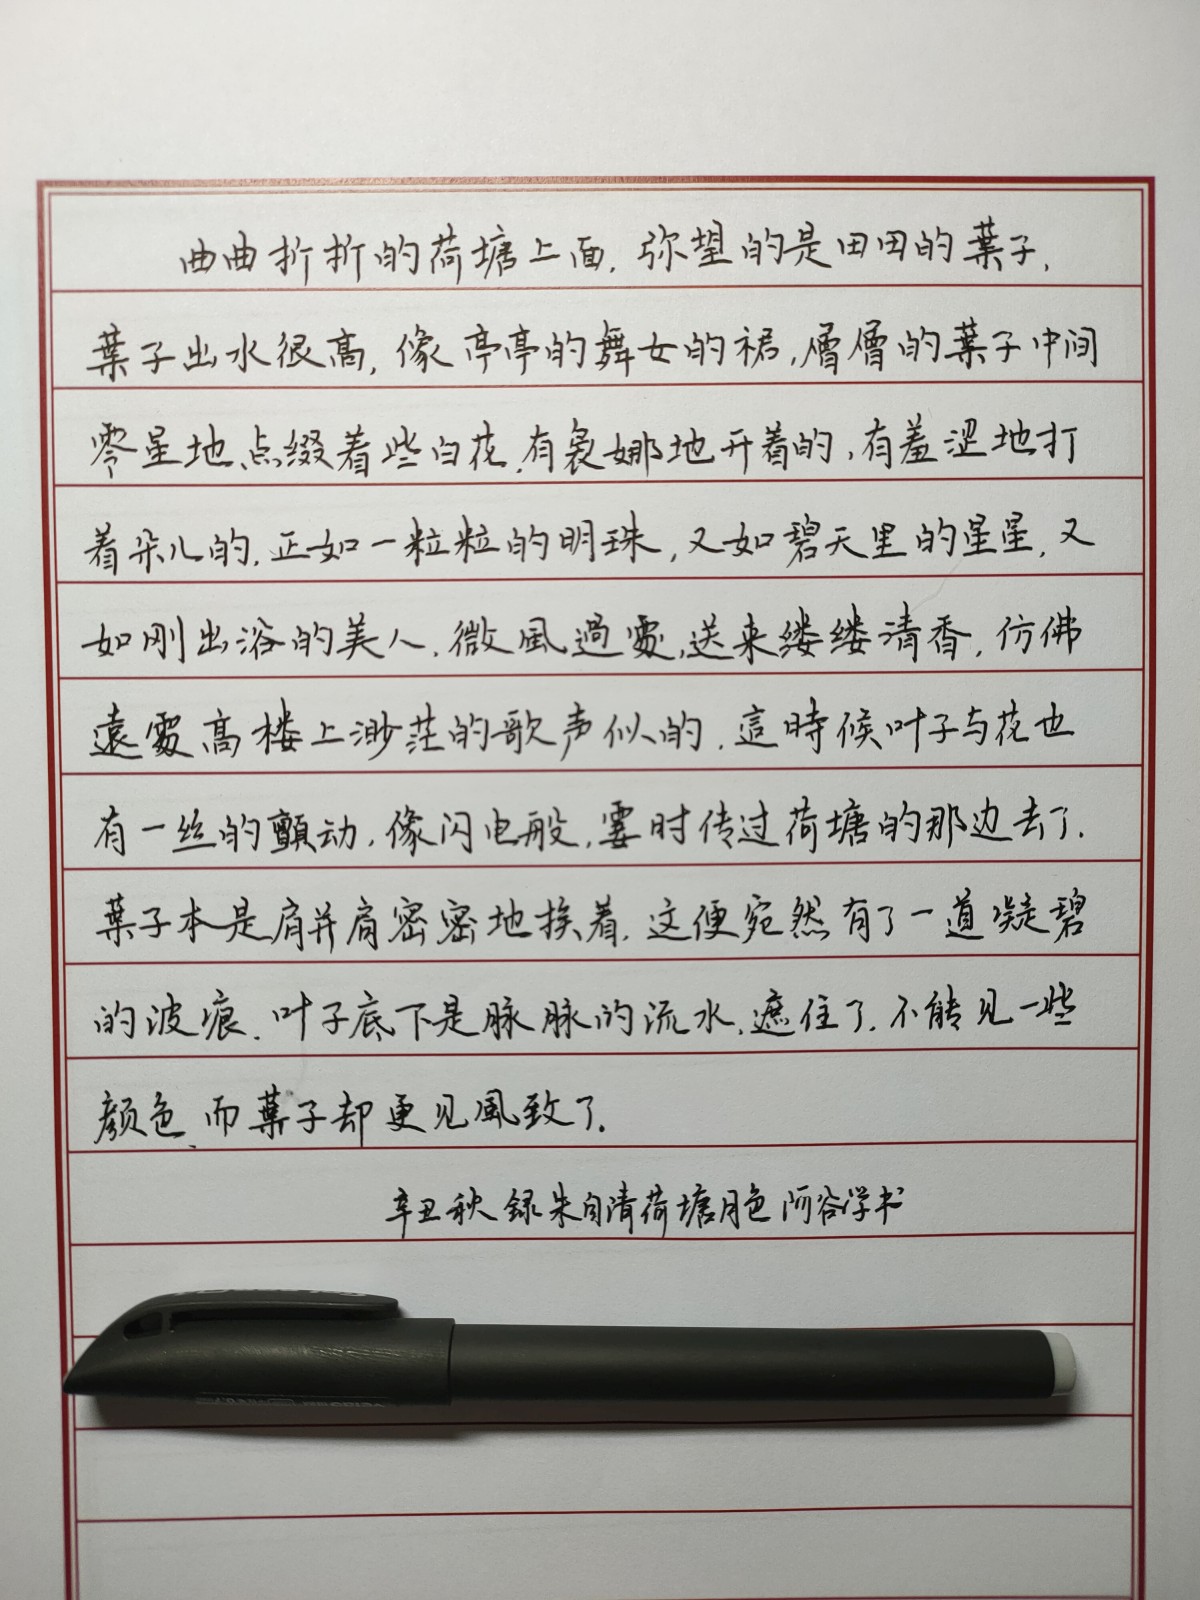 曲曲折折的荷塘上面,弥望的是田田的葉子,
葉子出水很高,像亭亭的舞女的裙,層層的葉子中间
零星地、点缀着些白花,有袅娜地开着的,有羞涩地打
着朵儿的,正如一粒粒的明珠,又如碧天里的星星,又
如刚出浴的美人,微風過處,送来缕缕清香,仿佛
遠處高楼上渺茫的歌声似的,這時候叶子与花也
有一丝的颤动,像闪电般,霎时传过荷塘的那边去了.
葉子本是肩并肩密密地挨着,这便宛然有了一道凝碧
的波痕.叶子底下是脉脉的流水,遮住了.不能见一些
颜色、而葉子却更见風致了.
辛丑秋录朱自清荷塘月色阿谷学书